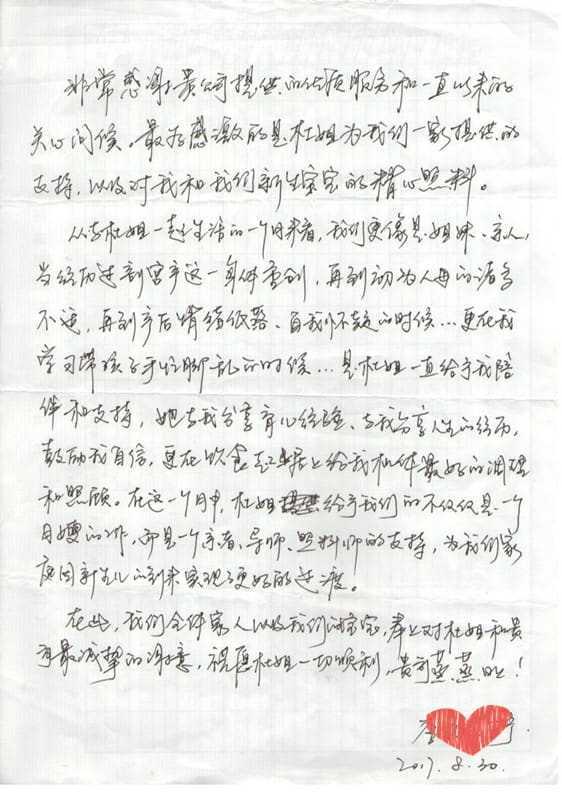 非常感谢贵公司提供的优质服务和一直以来的
关心问候。最为感激的是杜姐为我们一家提供的
支持,以及对我和我们新生宝宝的精心照料。
从与杜姐一起生活的一个月来看,我们更像是姐妹、亲人,
当经历过剖宫产这一身体重创,再到初为人母的诸多
不适,再到产后情绪低落、自我怀疑的时候…更在我
学习带孩子手忙脚乱的时候…是杜姐一直给予我陪
伴和支持,她与我分享育儿经验、与我分享人生的经历,
鼓励我自信,更在饮食起居上给我机体最好的调理
和照顾。在这一个月中,杜姐给予我们的不仅仅是一个
月嫂的工作,而是一个亲者、导师、照料师的支持,为我们家
庭因新生儿的到来实现了更好的过渡。
在此,我们全体家人以及我们的宝宝,奉上对杜姐和贵
司最诚挚的谢意,祝愿杜姐一切顺利,贵司蒸蒸日上!
2017.8.30.